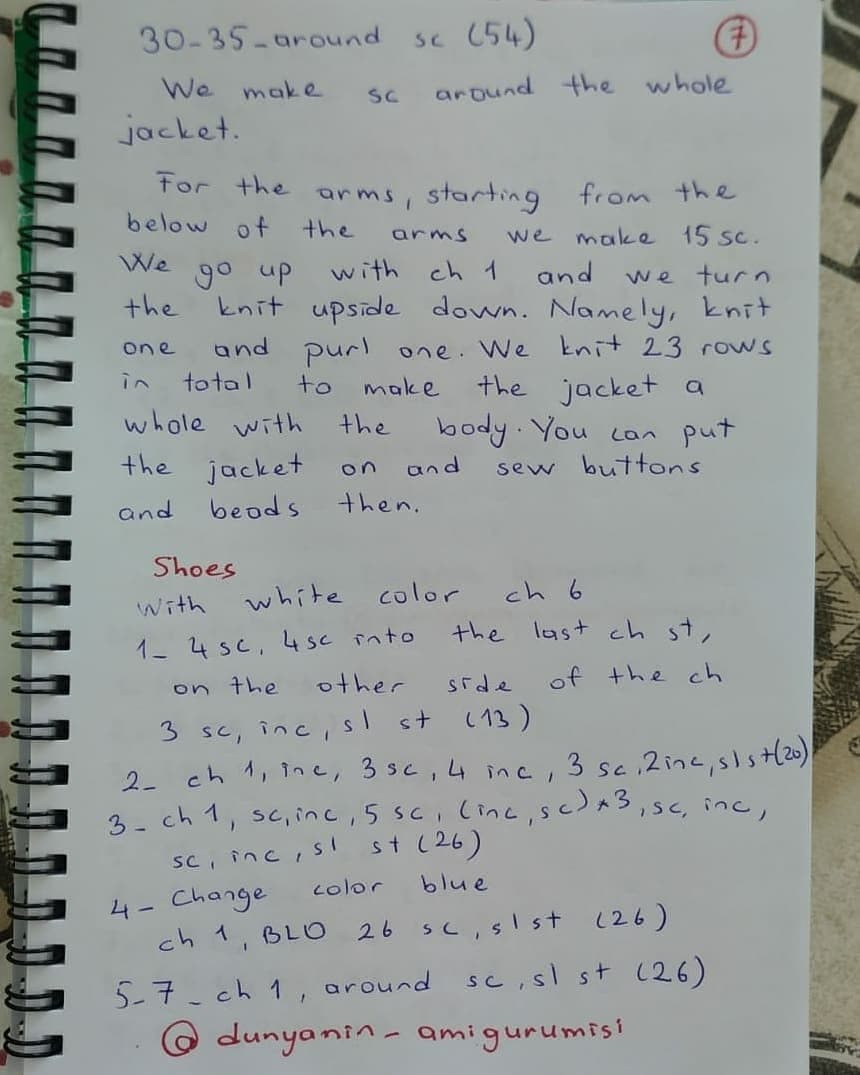 30-35-around sc (54)
7
We make sc around the whole
jacket.
For the arms, starting from the
below of the arms we make 15 sc.
We go up with ch 1 and we turn
the knit upside down. Namely, knit
one and purl one. We knit 23 rows
in total to make the jacket a
whole with the body. You can put
the jacket on and sew buttons
and beads then.
Shoes
With white color ch 6
1- 4 sc, 4sc into the last ch st,
on the other side of the ch
3 sc, inc, sl st (13)
2- ch 1, inc, 3 sc, 4 inc, 3 sc, 2inc, slst(20)
3- ch 1, sc, inc, 5 sc, (inc, sc)*3, sc, inc,
sc, inc, sl st (26)
4- Change color blue
ch 1, BLO 26 sc, slst (26)
5-7- ch 1, around sc, sl st (26)
@ dunyanin-amigurumisi